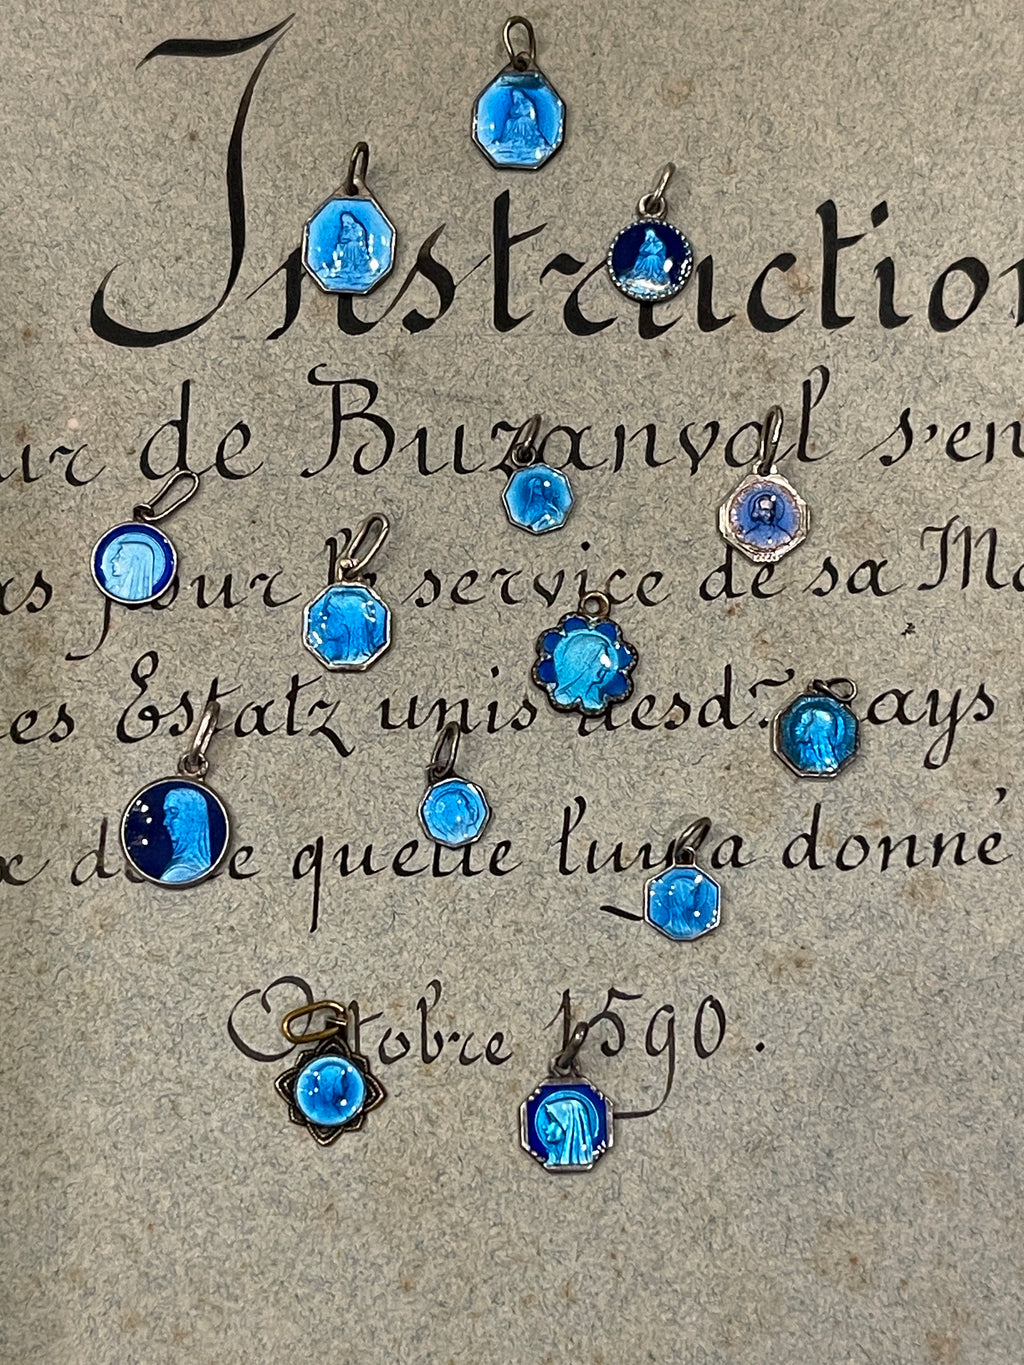 Instruction
de Buzanval s'en
pour service de sa
Estatz unis desd. pays
quelle luy a donné
Octobre 1590.